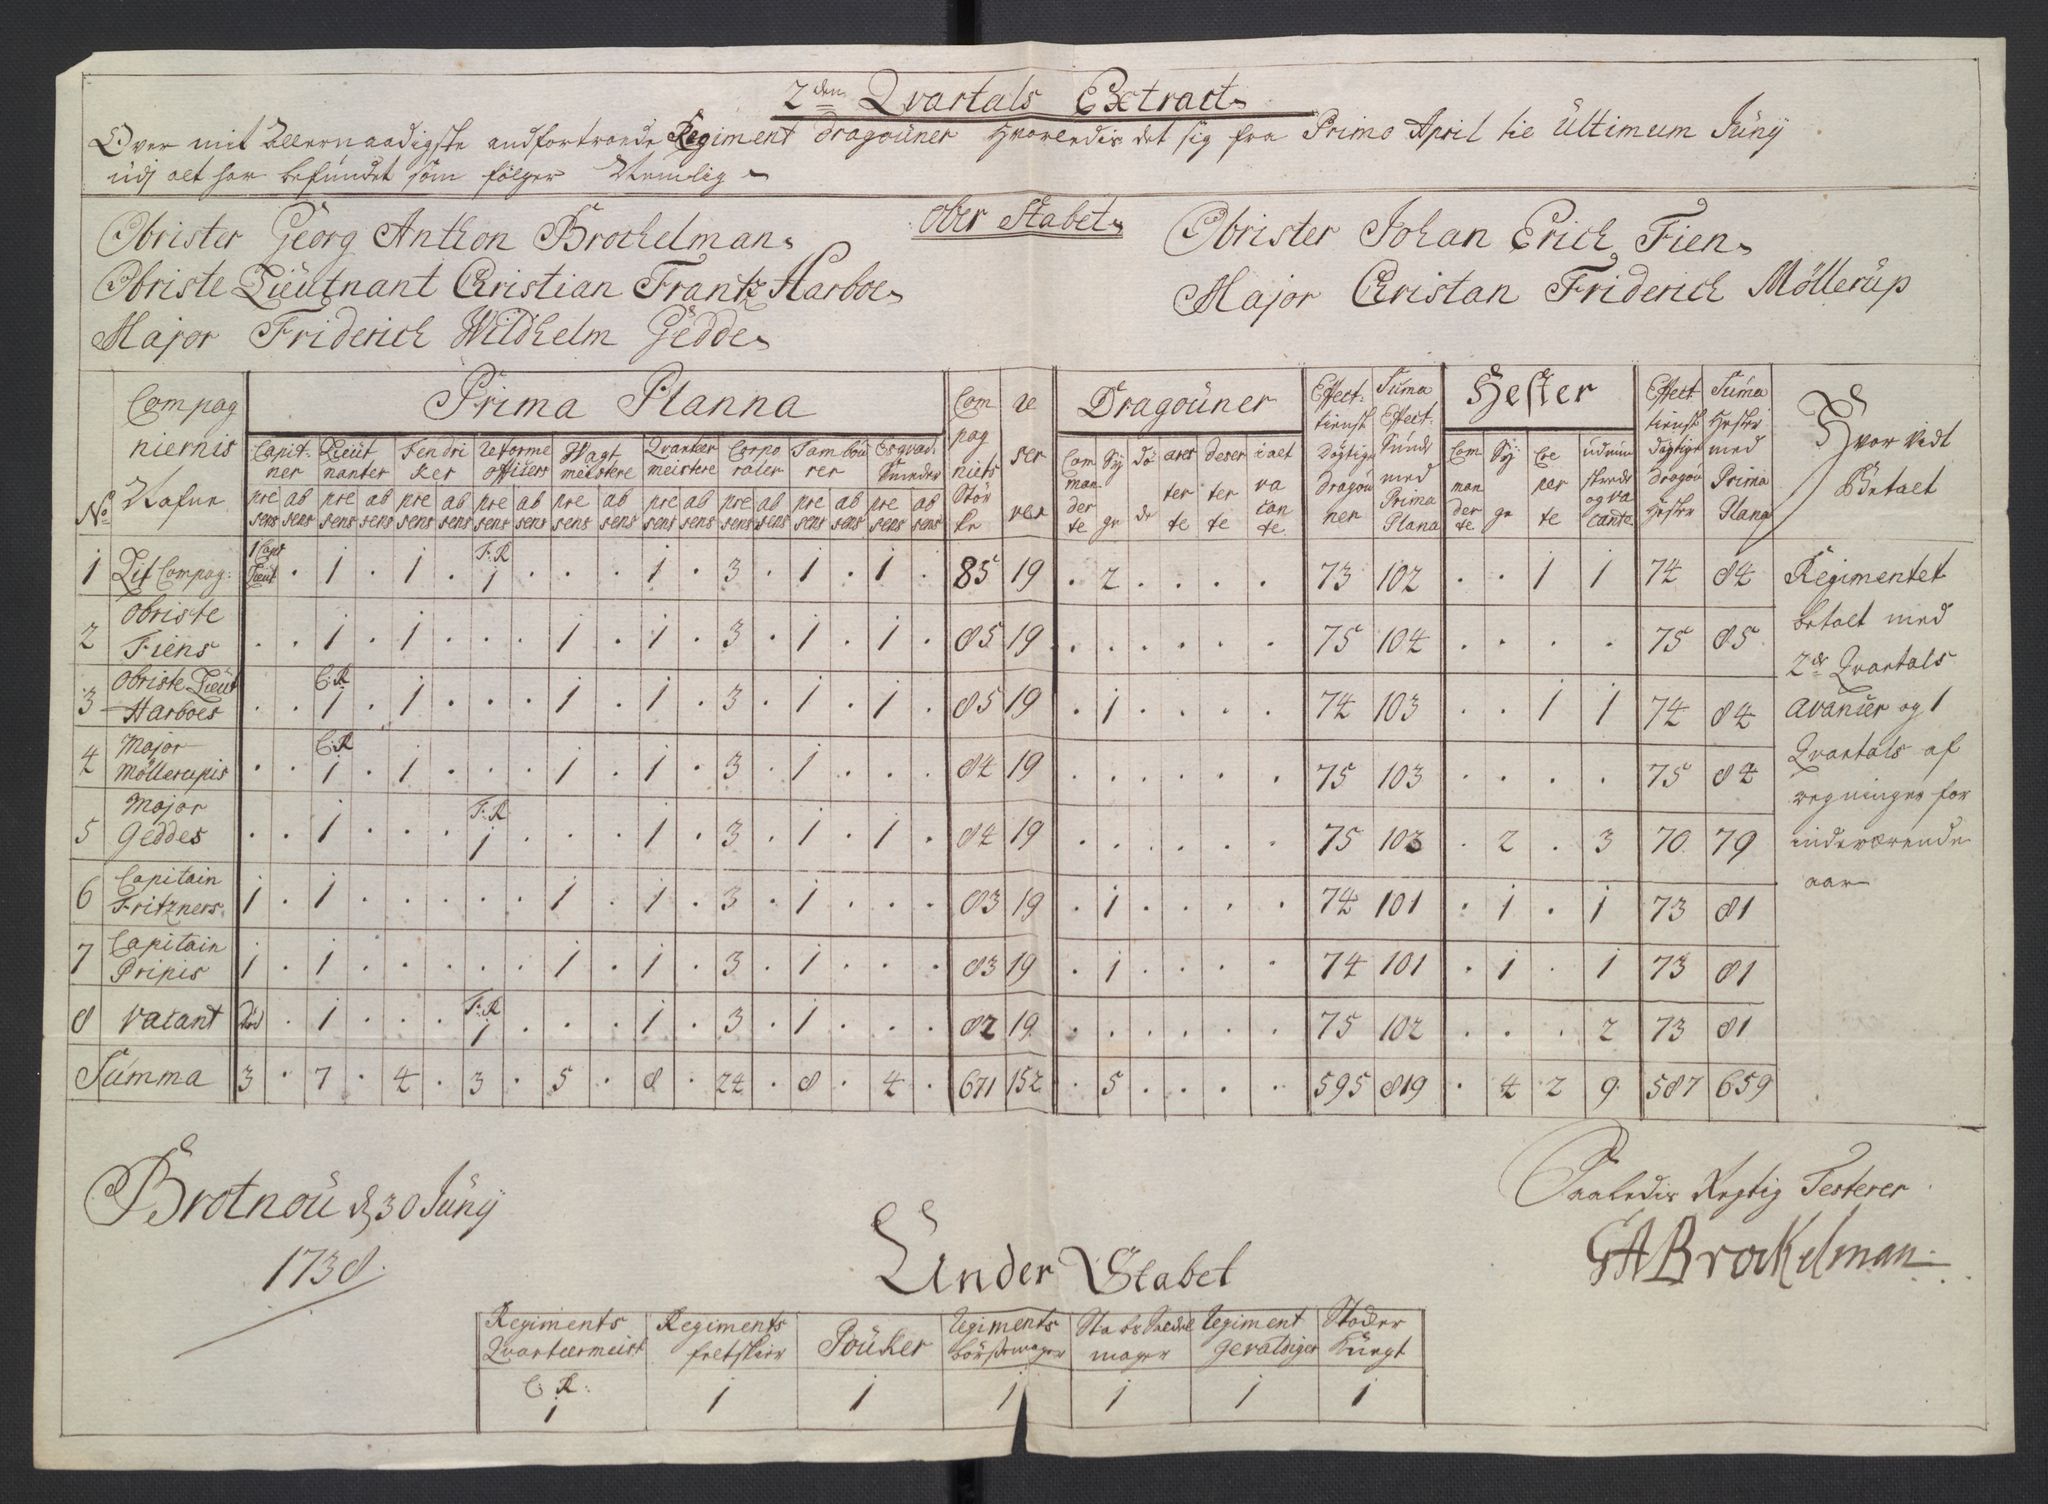 2den Qvartals Extract
Over mit Allernaadigste andfortroede Regiment Dragoüner Hvorledis det sig fra Primo April til Ultimum Jünij
udj alt har befündet som fölger Nemlig
Ober Stabet
Obrister Georg Anthon Brochelman
Obrister Johan Erich Fien
Obriste Lieütnant Christian Frantz Harboe
Major Christan Friderich Möllerüp
Major Friderich Wildhelm Gedde
No Compagniernis Nafne | Prima Planna | Compagniets Störke | Reserver | Dragoüner | Effect: tienst dögtige dragoüner | Suma Effect: med Prima Plana | Hester | Effect tienst dögtige dragou Hester | Suma Hester med Prima Plana | Hvor Vidt Betalt
Capitner | Lieütnanter | Fendriker | Reforme officers | Vagtmeistere | Qvarteermeistere | Corporaler | Tambourer | Esqvad: Smeeder
pre sens | ab sens | pre sens | ab sens | pre sens | ab sens | pre sens | ab sens | pre sens | ab sens | pre sens | ab sens | pre sens | ab sens | pre sens | ab sens | pre sens | ab sens
Commanderte | Syge | Döde | Aresterte | Deserterte | ialt vacante | Commanderte | Syge | Creperte | udmunstrede og vacante
1 Lif Compag: 1 Capt Lieüt . 1 . 1 . F:R 1 . . . 1 . 3 . 1 . 1 . 85 19 . 2 . . . . 73 102 . . 1 1 74 84
2 Obriste Fiens . . 1 . 1 . . . 1 . 1 . 3 . 1 . 1 . 85 19 . . . . . . 75 104 . . . . 75 85
3 Obriste Lieüt Harboes . . C:R 1 . 1 . . . 1 . 1 . 3 . 1 . 1 . 85 19 . 1 . . . . 74 103 . . 1 1 74 84
4 Major Möllerupis . . C:R 1 . 1 . . . 1 . 1 . 3 . 1 . . . 84 19 . . . . . . 75 103 . . . . 75 84
5 Major Geddes . . 1 . . . F:R 1 . . . 1 . 3 . 1 . 1 . 84 19 . . . . . . 75 103 . 2 . 3 70 79
6 Capitain Fritzners 1 . 1 . . . . . 1 . 1 . 3 . 1 . . . 83 19 . 1 . . . . 74 101 . 1 . 1 73 81
7 Capitain Pripis 1 . 1 . . . . . 1 . 1 . 3 . 1 . . . 83 19 . 1 . . . . 74 101 . 1 . 1 73 81
8 Vacant Död . 1 . . . F:R 1 . . . 1 . 3 . 1 . . . 82 19 . . . . . . 75 102 . . . 2 73 81
Summa 3 . 7 . 4 . 3 . 5 . 8 . 24 . 8 . 4 . 671 152 . 5 . . . . 595 819 . 4 2 9 587 659
Regimentet
betalt med
2de Qvartals
avancer og 1
Qvartals af
regninger for
indeværende
aar
Brotnoü d 30 Jünij
1738
Saaledis Rigtig Testerer
GABrockelman
Under Stabet
Regiments Qvarteermeist | Regiments feltskier | Poüker | Regiments börssemager | Stabs Sadelmager | Regiment gevaldiger | Stocker Knegt
C:R: 1 | 1 | 1 | 1 | 1 | 1 | 1